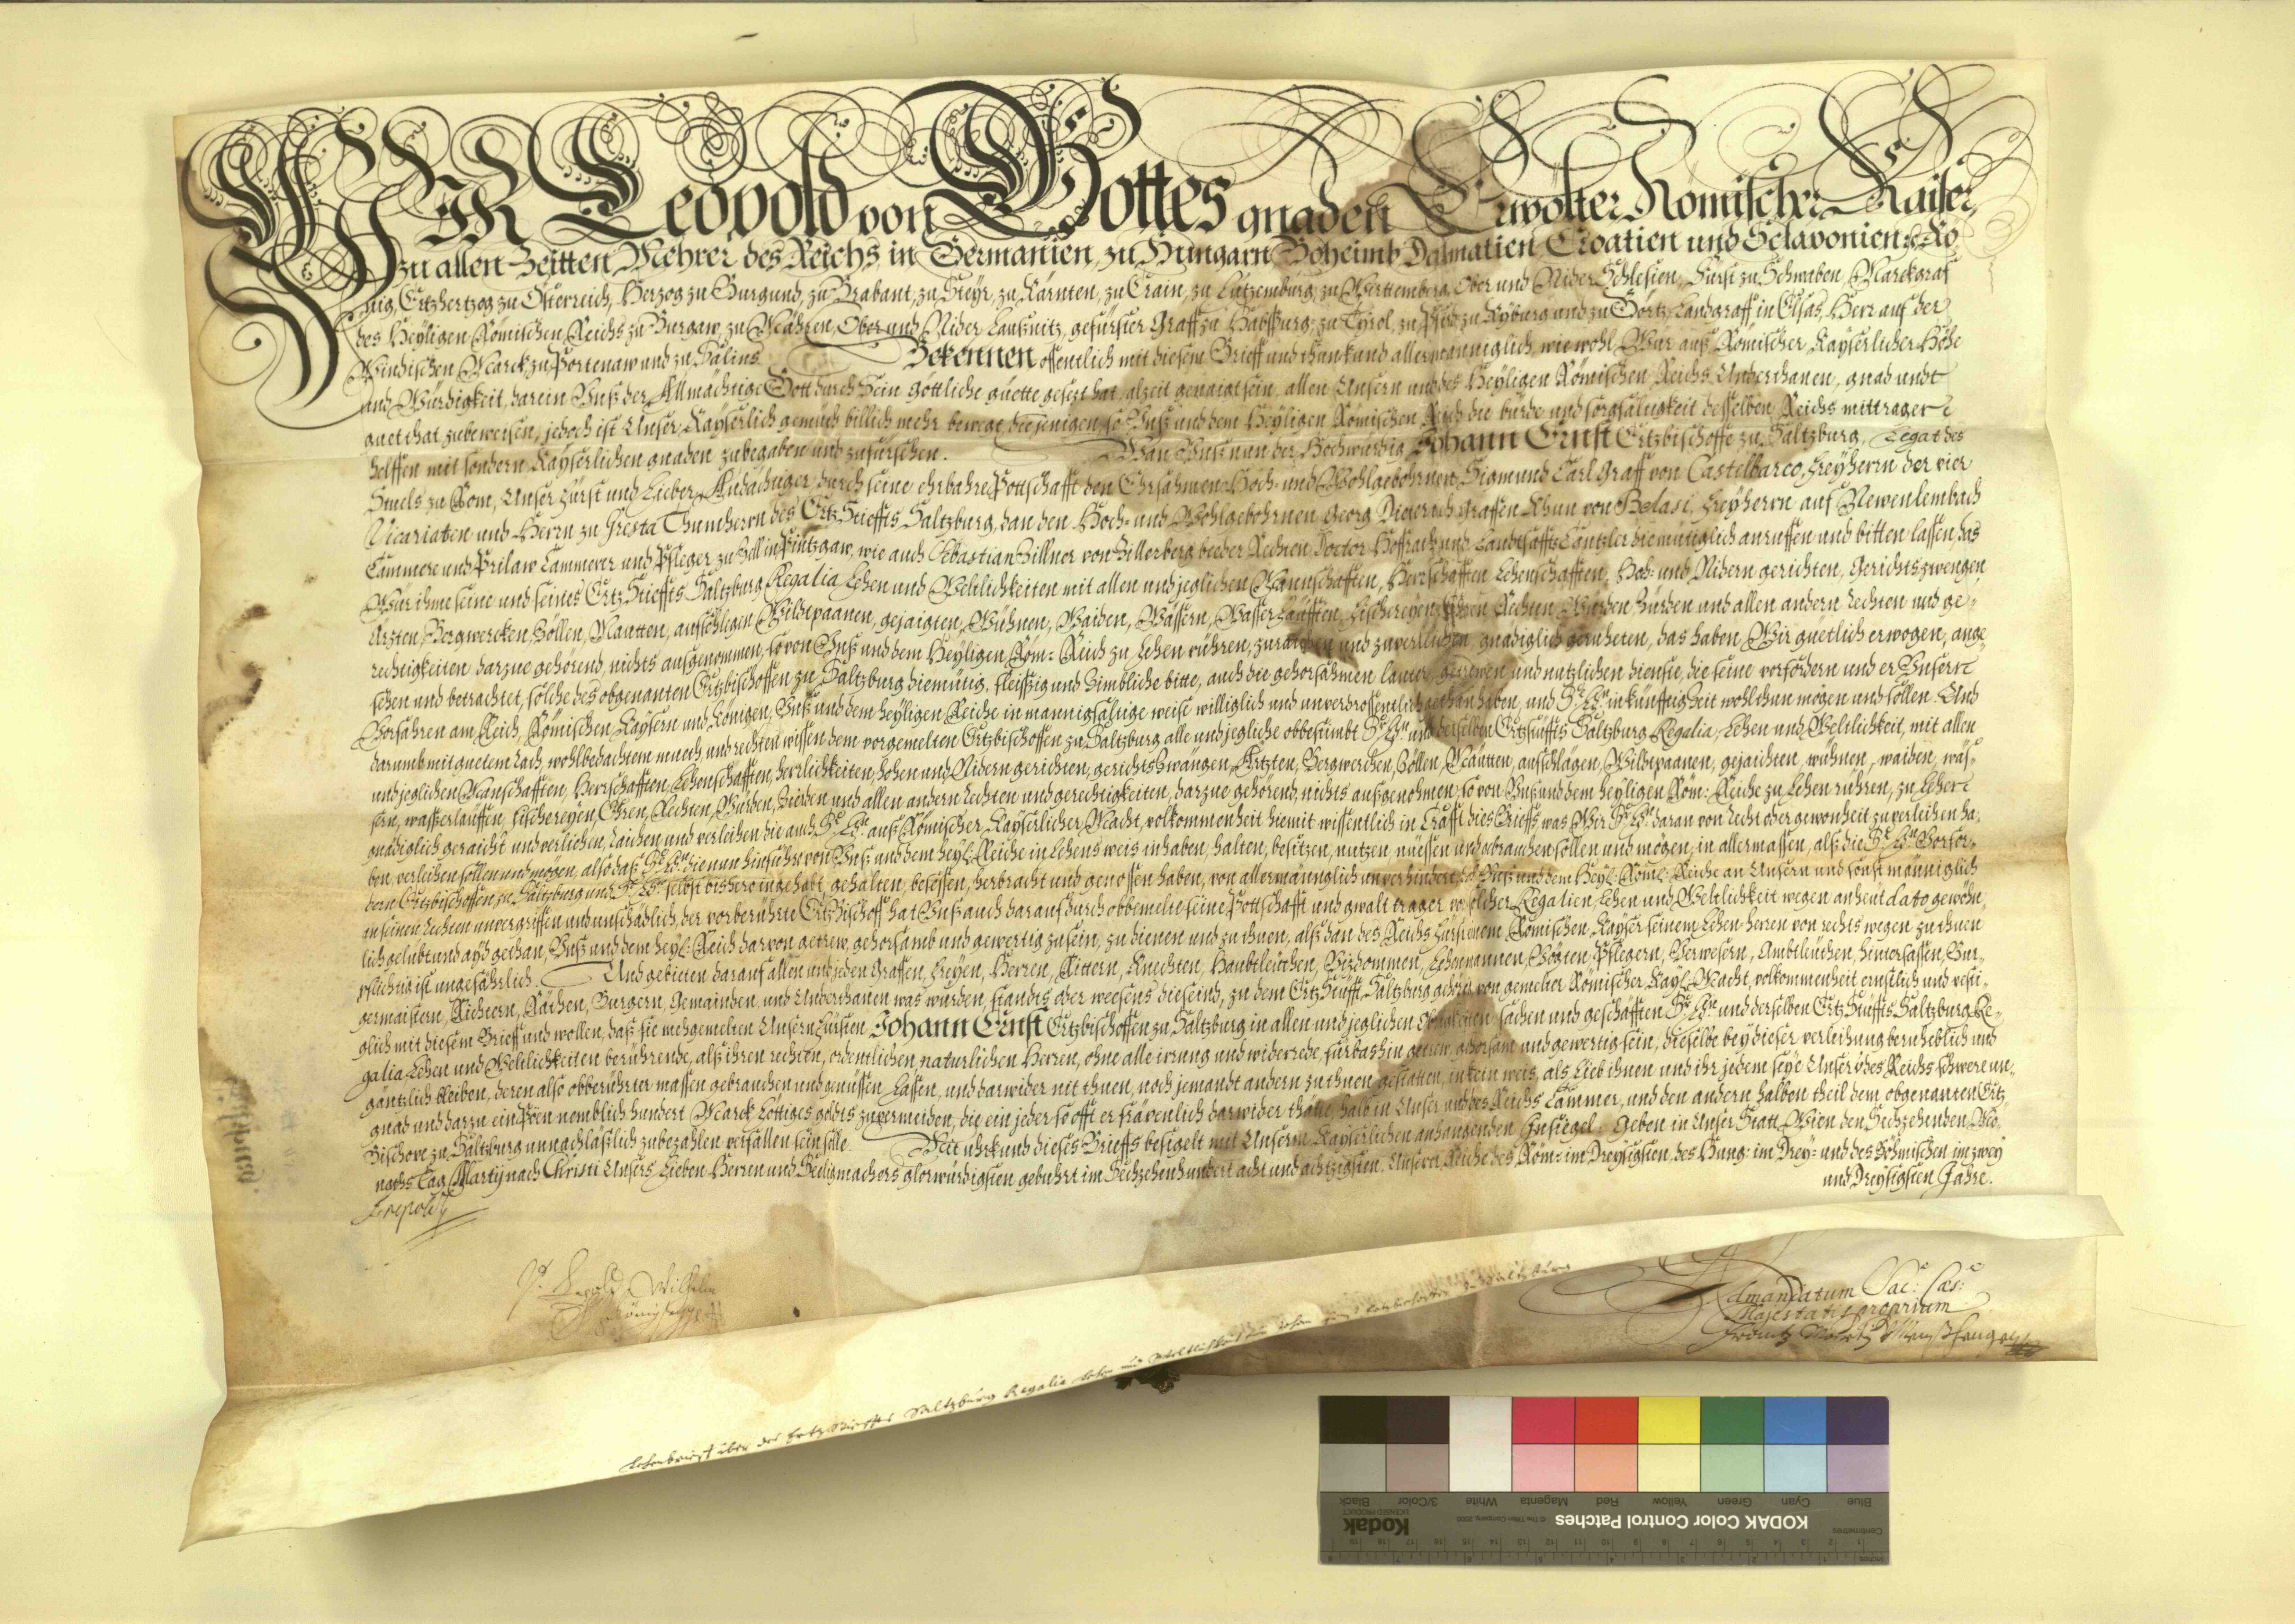 WIR Leopold von Gottes gnaden Erwölter Römischer Kaiser,
zu allen Zeitten Mehrer des Reichs, in Germanien, zu Hungarn Boheimb Dalmatien, Croatien und Sclavonien &c. Kö
nig, Ertzhertzog zu Österreich, Hertzog zu Burgund, zu Brabant, zu Steyr, zu Kärnten, zu Crain, zu Lützemburg, zu Wirttemberg, Ober und Nider Schlesien, Fürst zu Schwaben, Marckgraf
des Heyligen Römischen Reichs zu Burgaw, zu Mähren, Ober und Nider Laußnitz, gefürster Graff zu Habspurg, zu Tyrol, zu Pfird, zu Kyburg und zu Görtz, Landgraff in Elsas, Herr auf der
Windischen Marck zu Portenaw und zu Salins Bekennen offentlich mit diesem Brieff und thun kund allermänniglich, wie wohl Wür auß Römischer Kayserlicher Höhe
und Würdigkeit, darein Unß der Allmächtige Gott durch Sein Gottliche guette gesezt hat, alzeit genaigt sein, allen Unsern und des Heyligen Römischen Reichs Underthanen, gnad undt
guet that zubeweisen, jedoch ist Unser Kayserlich gemüth billich mehr bewegt, die jenigen, so Unß und dem Heyligen Römischen Reich die bürde und sorgfältigkeit desselben Reichs mittragen
helffen mit sondern Kayserlichen gnaden zubegaben und zufürsehen. Wan Unß nun der Hochwürdig Johann Ernst Ertzbischoffe zu Saltzburg, Legat des
Stuels zu Rom, Unser Fürst und Lieber Andächtiger, durch seine ehrbahre Pottschafft den Ehrsahmen Hoch- und Wohlgebohrnen Sigmund Carl Graff von Castelbarco, Freyherrn der vier
Vicariaten und Herrn zu Gresta Thumherrn des Ertz Stieffts Saltzburg, dan den Hoch- und Wohlgebohrnen Georg Dieterich Graffen Khun von Belasi, Freyherrn auf Newenlembach
Cammerer und Pfleger zu Zell in Pintzgaw, wie auch Sebastian Zillner von Zillerberg beeder Rechten Doctor Hoffrath und Landtschaffts Cantzler diemütiglich anruffen und bitten lassen, das
Wür ihme seine und seines Ertz Stieffts Saltzburg Regalia Lehen und Weltlichkeiten mit allen und jeglichen Mannschafften, Herrschafften Lehenschafften, Hoh- und Nidern gerichten, Gerichtszwengen
Artzten, Bergwercken, Zöllen, Mautten, aufschlägen Wildtpaanen, gejaigten, Wühnen, Waiden, Wässern, Wasserläufften, Fischereyen, Ehren Rechten Würden Zürden und allen andern rechten und ge-
rechtigkeiten darzue gehörend, nichts außgenommen, so von Unß und dem Heyligen Röm: Reich zu Lehen rühren, zuraichen und zuverleihen, gnädiglich geruheten, das haben, Wir guetlich erwogen, ange-
sehen und betrachtet, solche des obgenanten Ertzbischoffen zu Saltzburg diemütig, fleissig und Zimbliche bitte, auch die gehorsahmen getrewen und nutzlichen dienste, die seine vorfordern und er Unserre
Vorfahren am Reich, Römischen Kaysern und Königen, Unß und dem heyligen Reiche in mannigfältige weise williglich und unverdrossentlich gethan haben, und Sr. Ld. in künfftig Zeit wohl thun mögen und sollen. Und
darumb mit guetem Rath, wohlbedachtem mueth, und rechten wissen dem vorgemelten Ertzbischoffen zu Saltzburg alle und jegliche obbestimbt Sr. Ld. und derselben Ertzstiffts Saltzburg Regalia, Lehen und Weltlichkeit, mit allen
und jeglichen Manschafften, Herrschafften, Lehenschafften, herrlichkeiten, hohen und Nidern gerichten, gerichtszwängen, Artzten, Bergwerchen, Zöllen, Mautten, aufschlägen, Wildpaanen, gejaichten, wühnen, waiden, wäs-
sern, wasserläuffen, fischereyen, Ehren, Rechten, Würden, Zierden und allen andern rechten und gerechtigkeiten, darzue gehörend, nichts außgenohmen, so von Unß und dem heyligen Röm: Reiche zu Lehen rühren, zu Lehen
gnädiglich geraicht und verliehen, raichen und verleihen die auch Sr. Ld. auß Römischer Kayserlicher Macht, volkommenheit hiemit wissentlich in Crafft dies Brieffs was Wir Sr. Ld. daran von recht oder gewonheit zuverleihen ha-
ben, verleihen sollen und mögen, also daß Sr. Ld. die nun hinführo von Unß und dem heyl: Reiche in Lehens weis inhaben, halten, besitzen, nutzen, niessen und gebrauchen sollen und mögen, in allermassen, alß die Sr. Ld. Vorfor-
dern Ertzbischoffen zu Saltzburg und Sr. Ld. selbst bishero ingehabt, gehalten, besessen, herbracht und genossen haben, von allermänniglich unverhindert, doch Unß und dem Heyl: Röm: Reiche an Unsern und sonst männiglich
an seinen Rechten unvergriffen und unschädlich, der vorberührte Ertz Bischoff hat Unß auch darauf durch obbemelte seine Pottschafft und gwalt trager von solcher Regalien, Lehen und Weltlichkeit wegen anheut dato gewöhn-
lich gelübt und ayd gethan, Unß und dem heyl: Reich darvon getrew, gehorsamb und gewertig zu sein, zu dienen und zu thuen, alß dan des Reichs Fürst einem Römischen Kayser seinem Lehen herren von rechts wegen zu thuen
pflichtig ist ungefährlich. Und gebieten darauf allen und jeden Graffen, Freyen, Herren, Rittern, Knechten, Haubtleüthen, Vizdommen, Lehenmannen, Vögten, Pflegern, Verwesern, Ambtleüthen, hintersassen, Bur-
germaistern, Richtern, Räthen, Burgern, Gemainden, und Underthanen was würden, standts oder weesens die seind, zu dem Ertz Stüfft Saltzburg gehörig von gemelter Römischer Kayl. Macht, volkommenheit ernstlich und vesti-
glich mit diesem Brieff und wollen, daß sie mehgemelten Unsern Fürsten Johann Ernst Ertzbischoffen zu Saltzburg in allen und jeglichen sachen und geschäfften Sr. Ld. und derselben Ertz Stüffts Saltzburg Re-
galia, Lehen und Weltlichkeiten berührende, alß ihren rechten, ordentlichen, naturlichen Herren, ohne alle irrung und widerrede, fürbashin getrew, gehorsam und gewertig sein, dieselbe bey dieser verleihung beruheblich und
gäntzlich bleiben, deren also obberührter massen gebrauchen und genüssen Lassen, und darwider nit thuen, noch jemandt andern zu thuen gestatten, in kein weis, als Lieb ihnen und ihr jedem seye Unser und des Reichs schwere un-
gnad und darzu ein Peen nemblich hundert Marck Löttiges goldts zuvermeiden, die ein jeder so offt er frävenlich darwider thätte, halb in Unser und des Reichs Cammer, und den andern halben theil dem obgenanten Ertz
Bischove zu Saltzburg unnachläßlich zubezahlen verfallen sein solle. Mit uhrkund dieses Brieffs besigelt mit Unserm Kayserlichen anhangenden Insiegel. Geben in Unser Statt Wien den Sechzehenden Mo-
naths Tag Martij nach Christi Unsers Lieben Herren und Seeligmachers glorwürdigsten gebuhrt im Sechzehenhundert acht und achtzigsten, Unserer Reiche des Röm: im Dreysigsten, des Hung: im Drey- und des Böhmischen im zwey
und Dreysigsten Jahre.
Leopold
Vt. Leopold Wilhelm
Königsegg
Ad mandatum Sac: Cæs:
Majestatis proprium
Lehenbrieff über des Ertz Stieffts Saltzburg Regalia Lehen und Weltlichkeit
KODAK Color Control Patches
© The Tiffen Company, 2000
Kodak
LICENSED PRODUCT
Blue Cyan Green Yellow Red Magenta White 3/Color Black
Centimetres
Inches